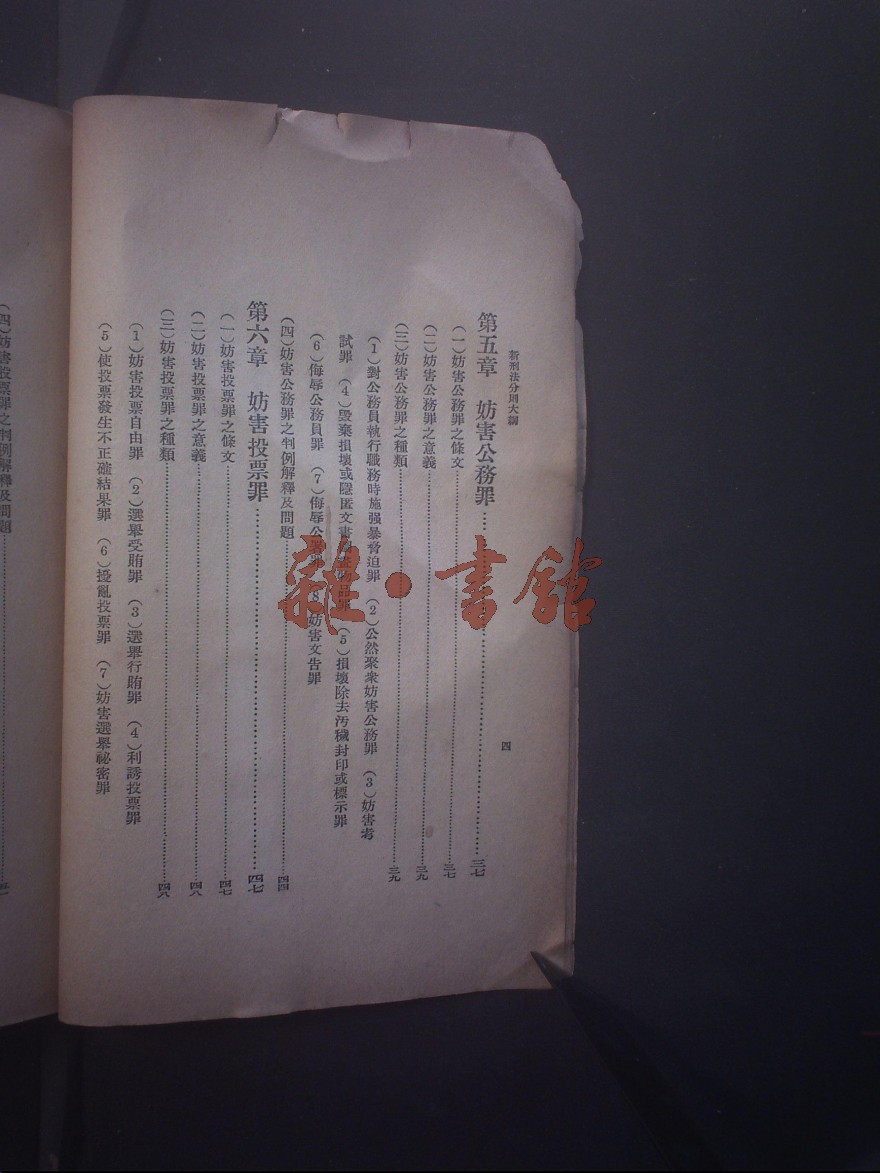 新刑法分則大綱
四
第五章　妨害公務罪……三七
(一)妨害公務罪之條文……三七
(二)妨害公務罪之意義……三九
(三)妨害公務罪之種類……三九
(1)對公務員執行職務時施强暴脅迫罪　(2)公然聚衆妨害公務罪　(3)妨害考
試罪　(4)毀棄損壞或隱匿文書品罪　(5)損壞除去污穢封印或標示罪
(6)侮辱公務員罪　(7)侮辱公署罪　(8)妨害文告罪
(四)妨害公務罪之判例解釋及問題……四四
第六章　妨害投票罪……四七
(一)妨害投票罪之條文……四七
(二)妨害投票罪之意義……四八
(三)妨害投票罪之種類……四八
(1)妨害投票自由罪　(2)選舉受賄罪　(3)選舉行賄罪　(4)利誘投票罪
(5)使投票發生不正確結果罪　(6)擾亂投票罪　(7)妨害選舉祕密罪
(四)妨害投票罪之判例解釋及問題……
雜·書館